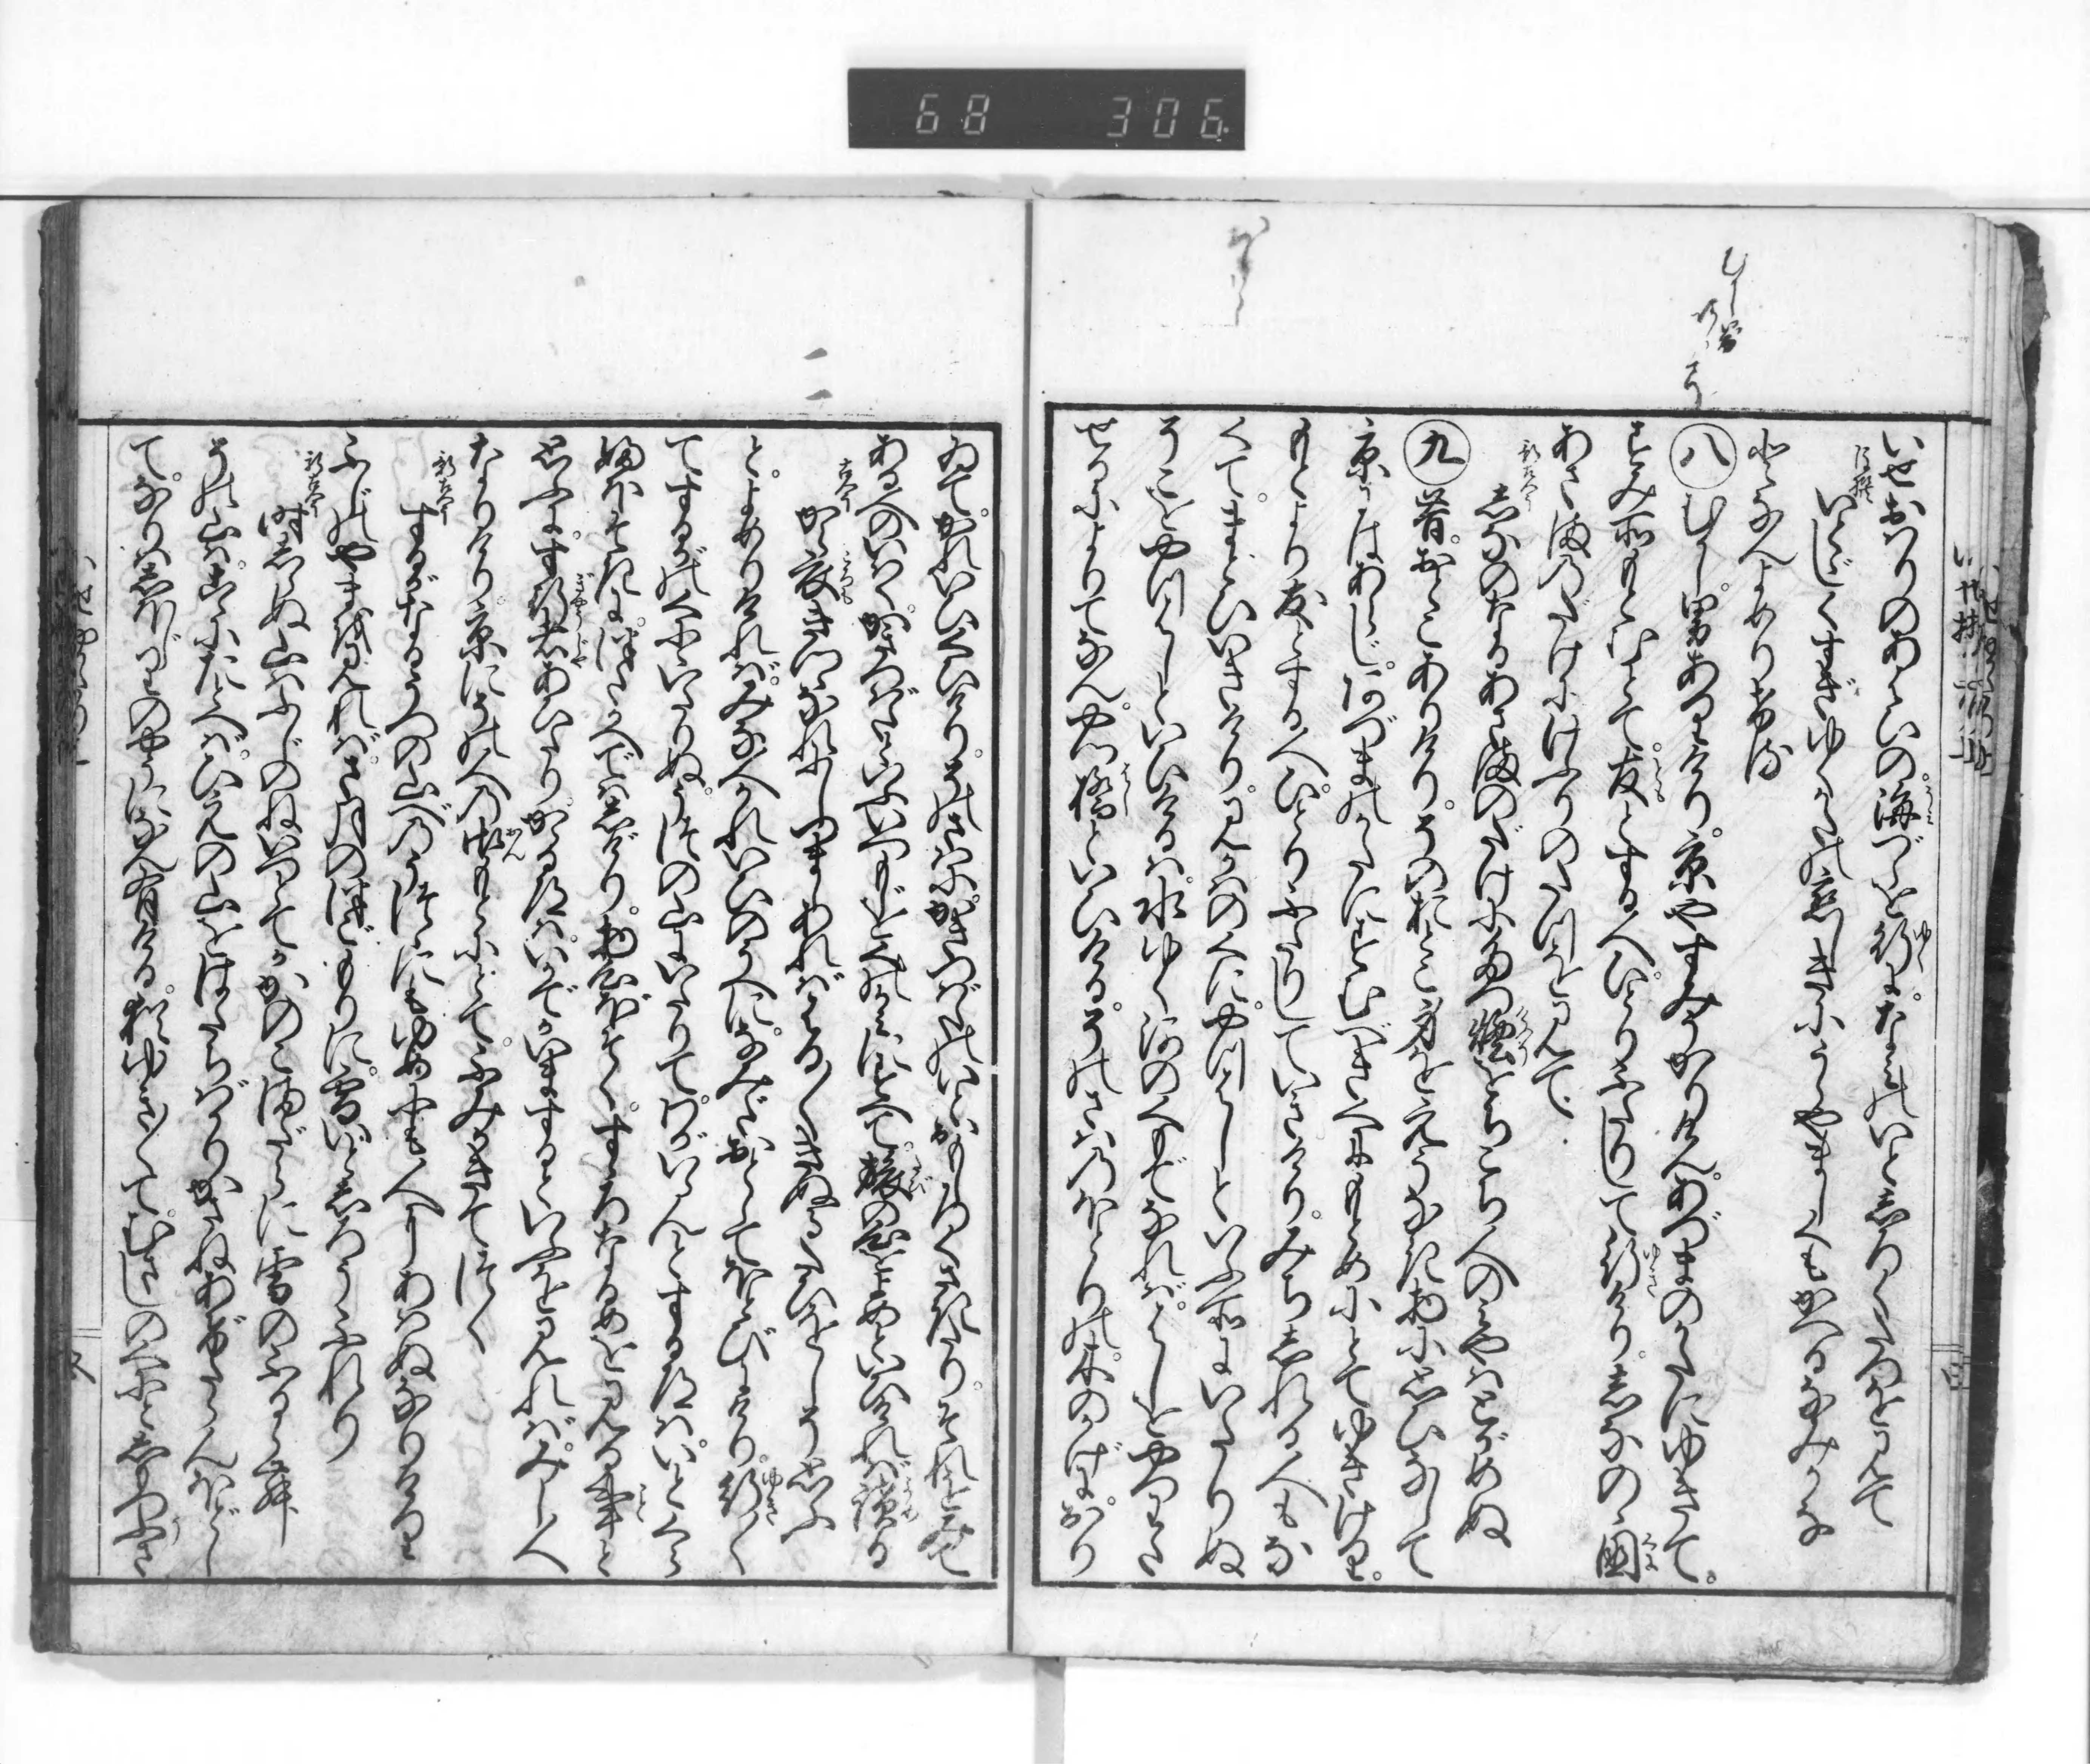 68 306
いせおはりのあはひの海づらを行に。なみのいとしろくたつを見て
後撰
いとゞしくすぎゆくかたの恋しきにうら山しくもかへるなみかな
となんよめりける
八 むかし。男ありけり。京やすみうかりけん。あづまのかたにゆきて。
すみ所もとむとて。友とする人。ひとりふたりして行けり。しなのゝ国
あさまのだけにけふりのたつを見て。
新古今
しなのなるあさまのだけにたつ煙をちこち人のみやはとがめぬ
九 昔。おとこありけり。そのおとこ身をえうなき物に思ひなして
京にはあらじ。あづまのかたにすむべき国もとめにとてゆきけり。
もとより友とする人。ひとりふたりしていきけり。みちしれる人もな
くて。まどひいきけり。みかはの国に。やつはしといふ所にいたりぬ
そこをやつはしといひけるは。水ゆく河のくもでなれば。はしをやつわた
せるによりてなん。やつ橋といひける。そのさはのほとりの。木のかげにおり
ゐて。かれいひくひけり。そのさはに。かきつばたいとおもしろくさきたり。それをみて
ある人のいはく。かきつばたといふいつもじをくのかみにすへて。旅の心をよめといひければ読る
古今
から衣きつゝなれにしつましあればはる〴〵きぬるたびをしぞ思ふ
とよめりければ。みな人かれいひのうへに。なみだおとしてほとびにけり。行〳〵
てするがの国にいたりぬ。うつの山にいたりて。わがいらんとする道は。いとくらう
ほそきに。つたかえではしげり。物心ぼそく。すゞろなるめを見る事と
思ふに。す行者あひたり。かゝる道は。いかでかいまするといふを見れば。みし人
なりけり。京にその人の御もとにとて。ふみかきてつく
新古今
するがなるうつの山べのうつゝにもゆめにも人にあはぬなりけり
ふじの山を見れば。五月のつごもりに。雪いとしろうふれり
新古今
時しらぬ山はふじのねいつとてかかのこまだらに雪のふるらん
その山は。こゝにたとへば。ひえの山をはたちばかりかさねあげたらんほど
して。なりはしほじりのやうになん有ける。猶ゆき〳〵て。むさしの国としもつふさ